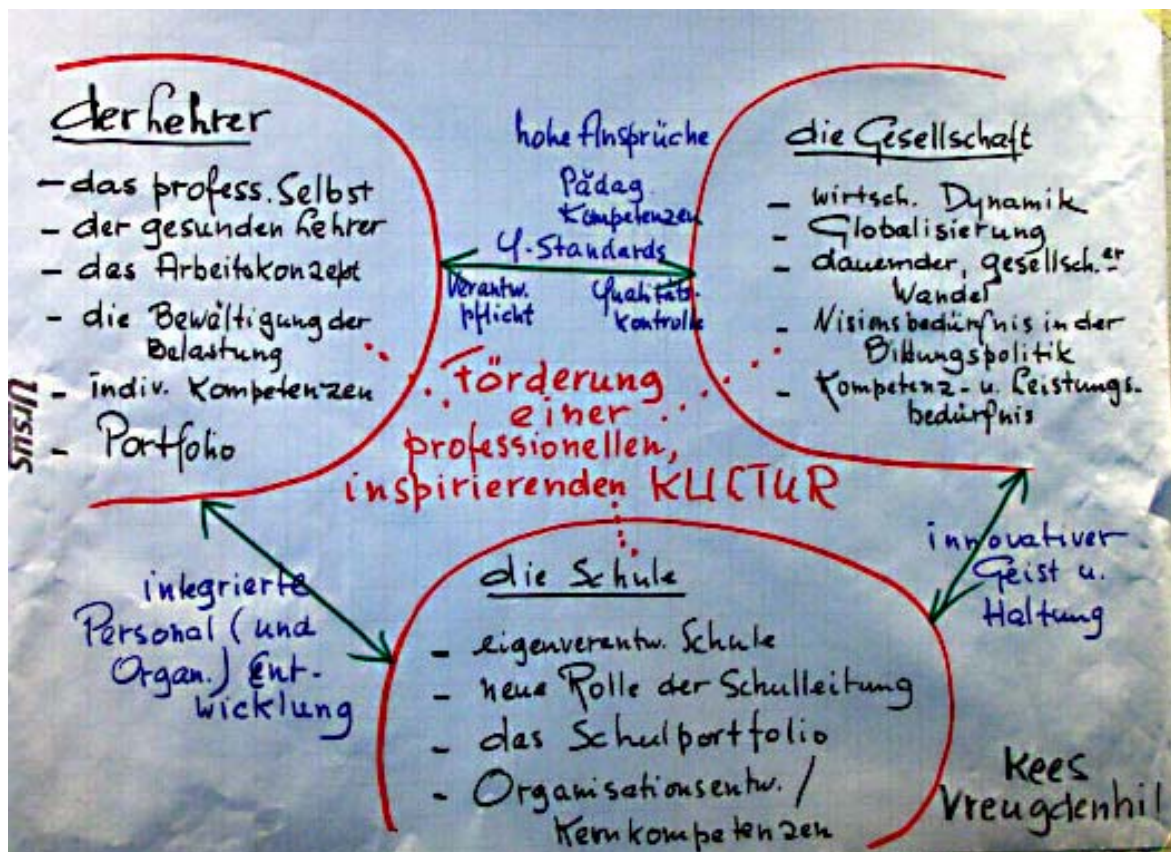 der Lehrer
- das profess. Selbst
- der gesunden Lehrer
- das Arbeitskonzept
- die Bewältigung der
Belastung
- indiv. Kompetenzen
- Portfolio
Ursus
hohe Ansprüche
Pädag.
Kompetenzen
Q-Standards
Verantw.
pflicht
Qualitäts-
kontrolle
die Gesellschaft
- wirtsch. Dynamik
- Globalisierung
- dauernder, gesellsch.er
Wandel
- Visionsbedürfnis in der
Bildungspolitik
- Kompetenz- u. Leistungs-
bedürfnis
Förderung
einer
professionellen,
inspirierenden KULTUR
integrierte
Personal (und
Organ.) Ent-
wicklung
die Schule
- eigenverantw. Schule
- neue Rolle der Schulleitung
- das Schulportfolio
- Organisationsentw. /
Kernkompetenzen
innovativer
Geist u.
Haltung
Kees
Vreugdenhil